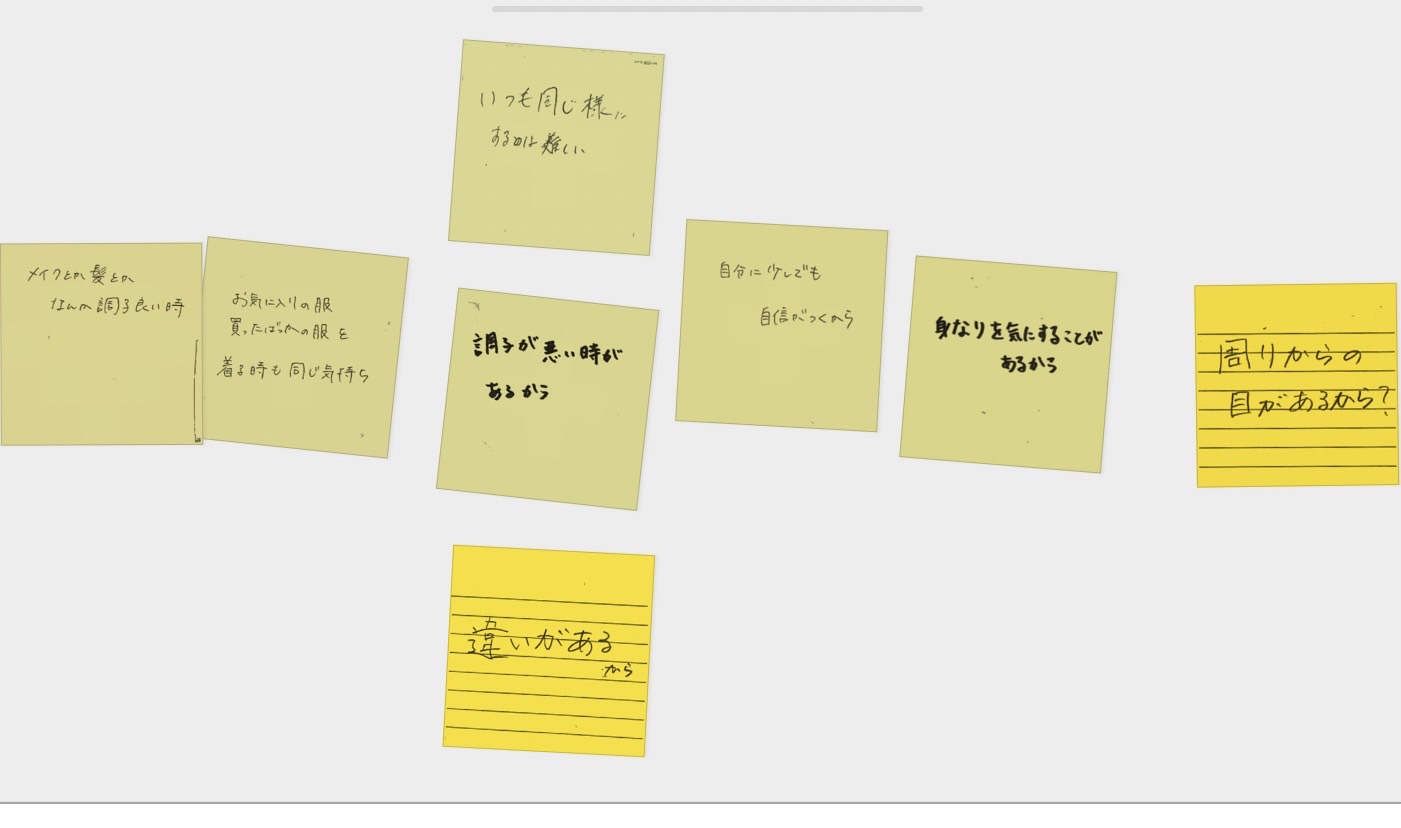 いつも同じ様に
するのは難しい
メイクとか髪とか
なんか調子良い時
お気に入りの服
買ったばっかの服を
着る時も同じ気持ち
調子が悪い時が
あるから
自分に少しでも
自信がつくから
身なりを気にすることが
あるから
周りからの
目があるから?
違いがある
から